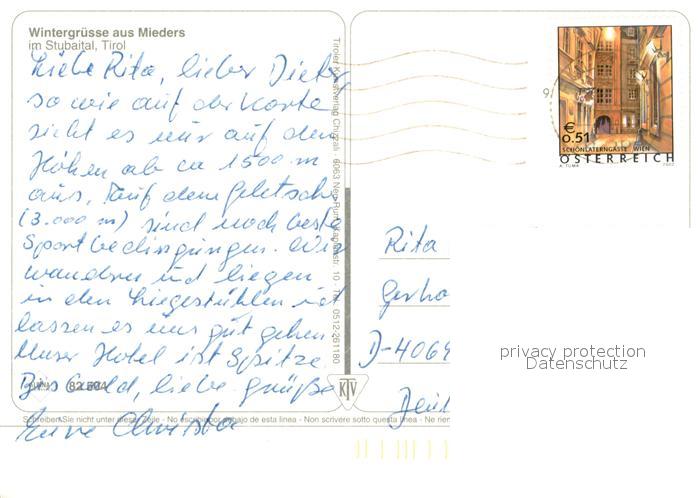 Wintergrüsse aus Mieders
im Stubaital, Tirol
Liebe Rita, lieber Dieter
so wie auf der Karte
sieht es nur auf den
Höhen ab ca 1500 m
aus. Auf dem Gletscher
(3.000 m) sind noch beste
Sportbedingungen. Wir
wandern und liegen
in den Liegestühlen und
lassen es uns gut gehen.
Unser Hotel ist Spitze.
Bis bald, liebe Grüße
Eure Christa
Schreiben Sie nicht unter dieser Zeile - No escribir por debajo de esta linea - Non scrivere sotto questa linea - Ne
Tiroler Kunstverlag Chizzali · 6063 Neu-Rum · 10 · Tel. 0512-261180
KTV
€
0.51
SCHÖNLATERNGASSE WIEN
ÖSTERREICH
A. TUMA 2002
Rita
Gerha
D-4064
privacy protection
Datenschutz